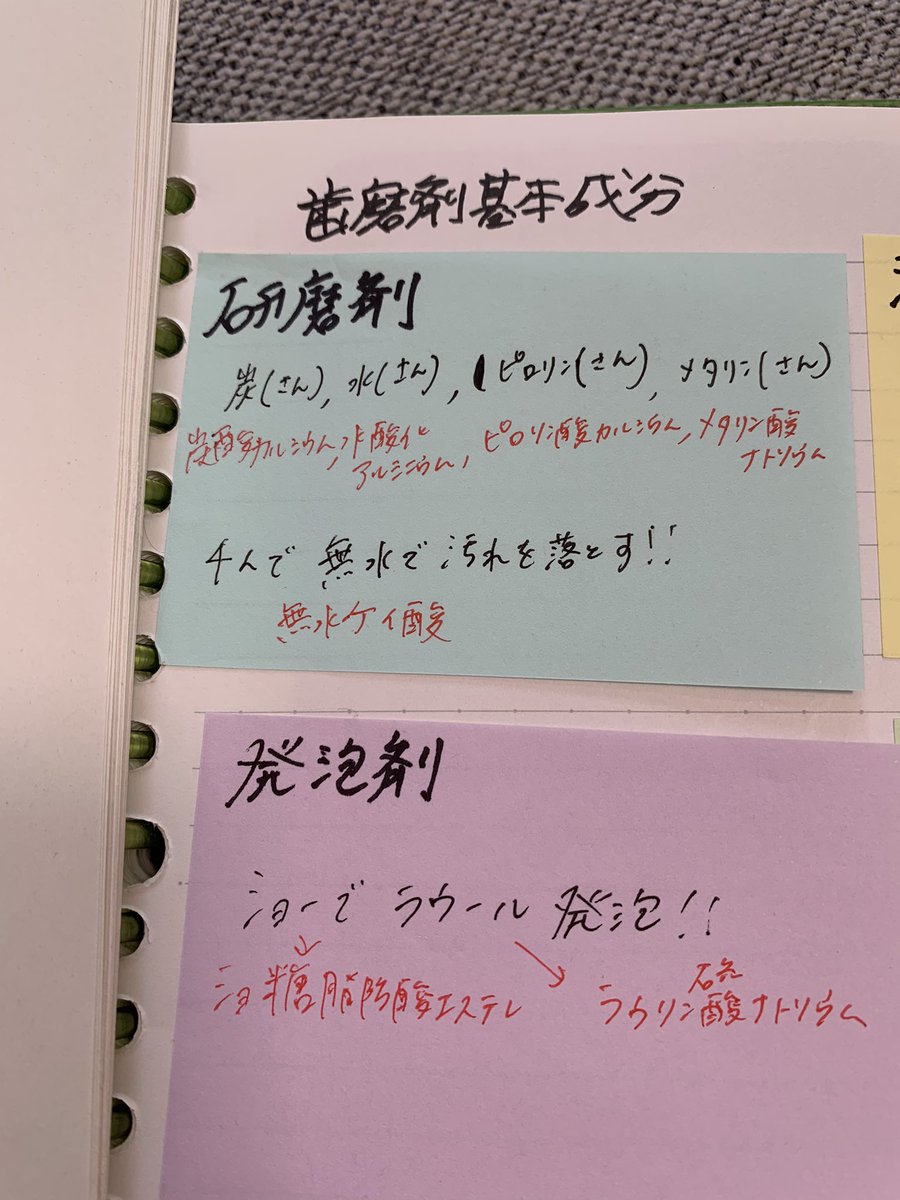 歯磨剤基本成分
研磨剤
炭(さん), 水(さん), ピロリン(さん), メタリン(さん)
炭酸カルシウム, 水酸化アルミニウム, ピロリン酸カルシウム, メタリン酸ナトリウム
チんで 無水で 汚れを落とす!!
無水ケイ酸
発泡剤
ショーで ラウール 発泡!!
ショ糖脂肪酸エステレ
ラウリン硫酸ナトリウム